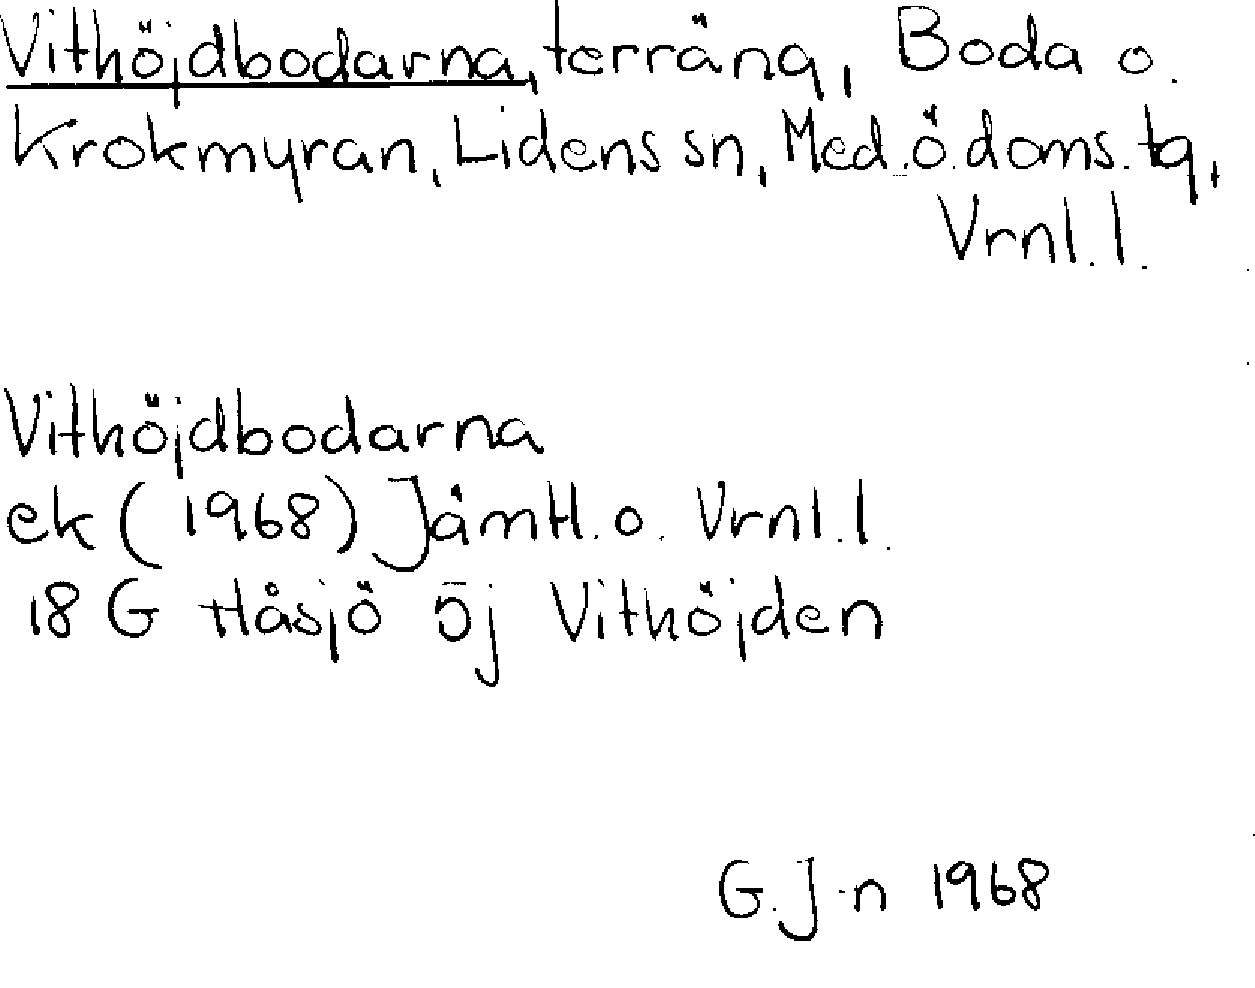 Vithöjdbodarna, terräng, Boda o.
Krokmyran, Lidens sn, Med.ö.doms.tg,
Vrnl.l.
Vithöjdbodarna
ek (1968) Jämtl.o. Vrnl.l.
18 G Håsjö 5j Vithöjden
G.J-n 1968